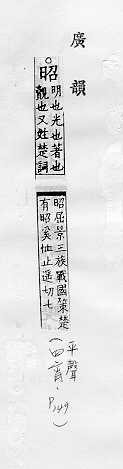 廣韻
昭
明也光也著也
覿也又姓楚詞
昭屈景三族戰國策楚
有昭奚恤止遥切七
平聲
(四宵·P.149)